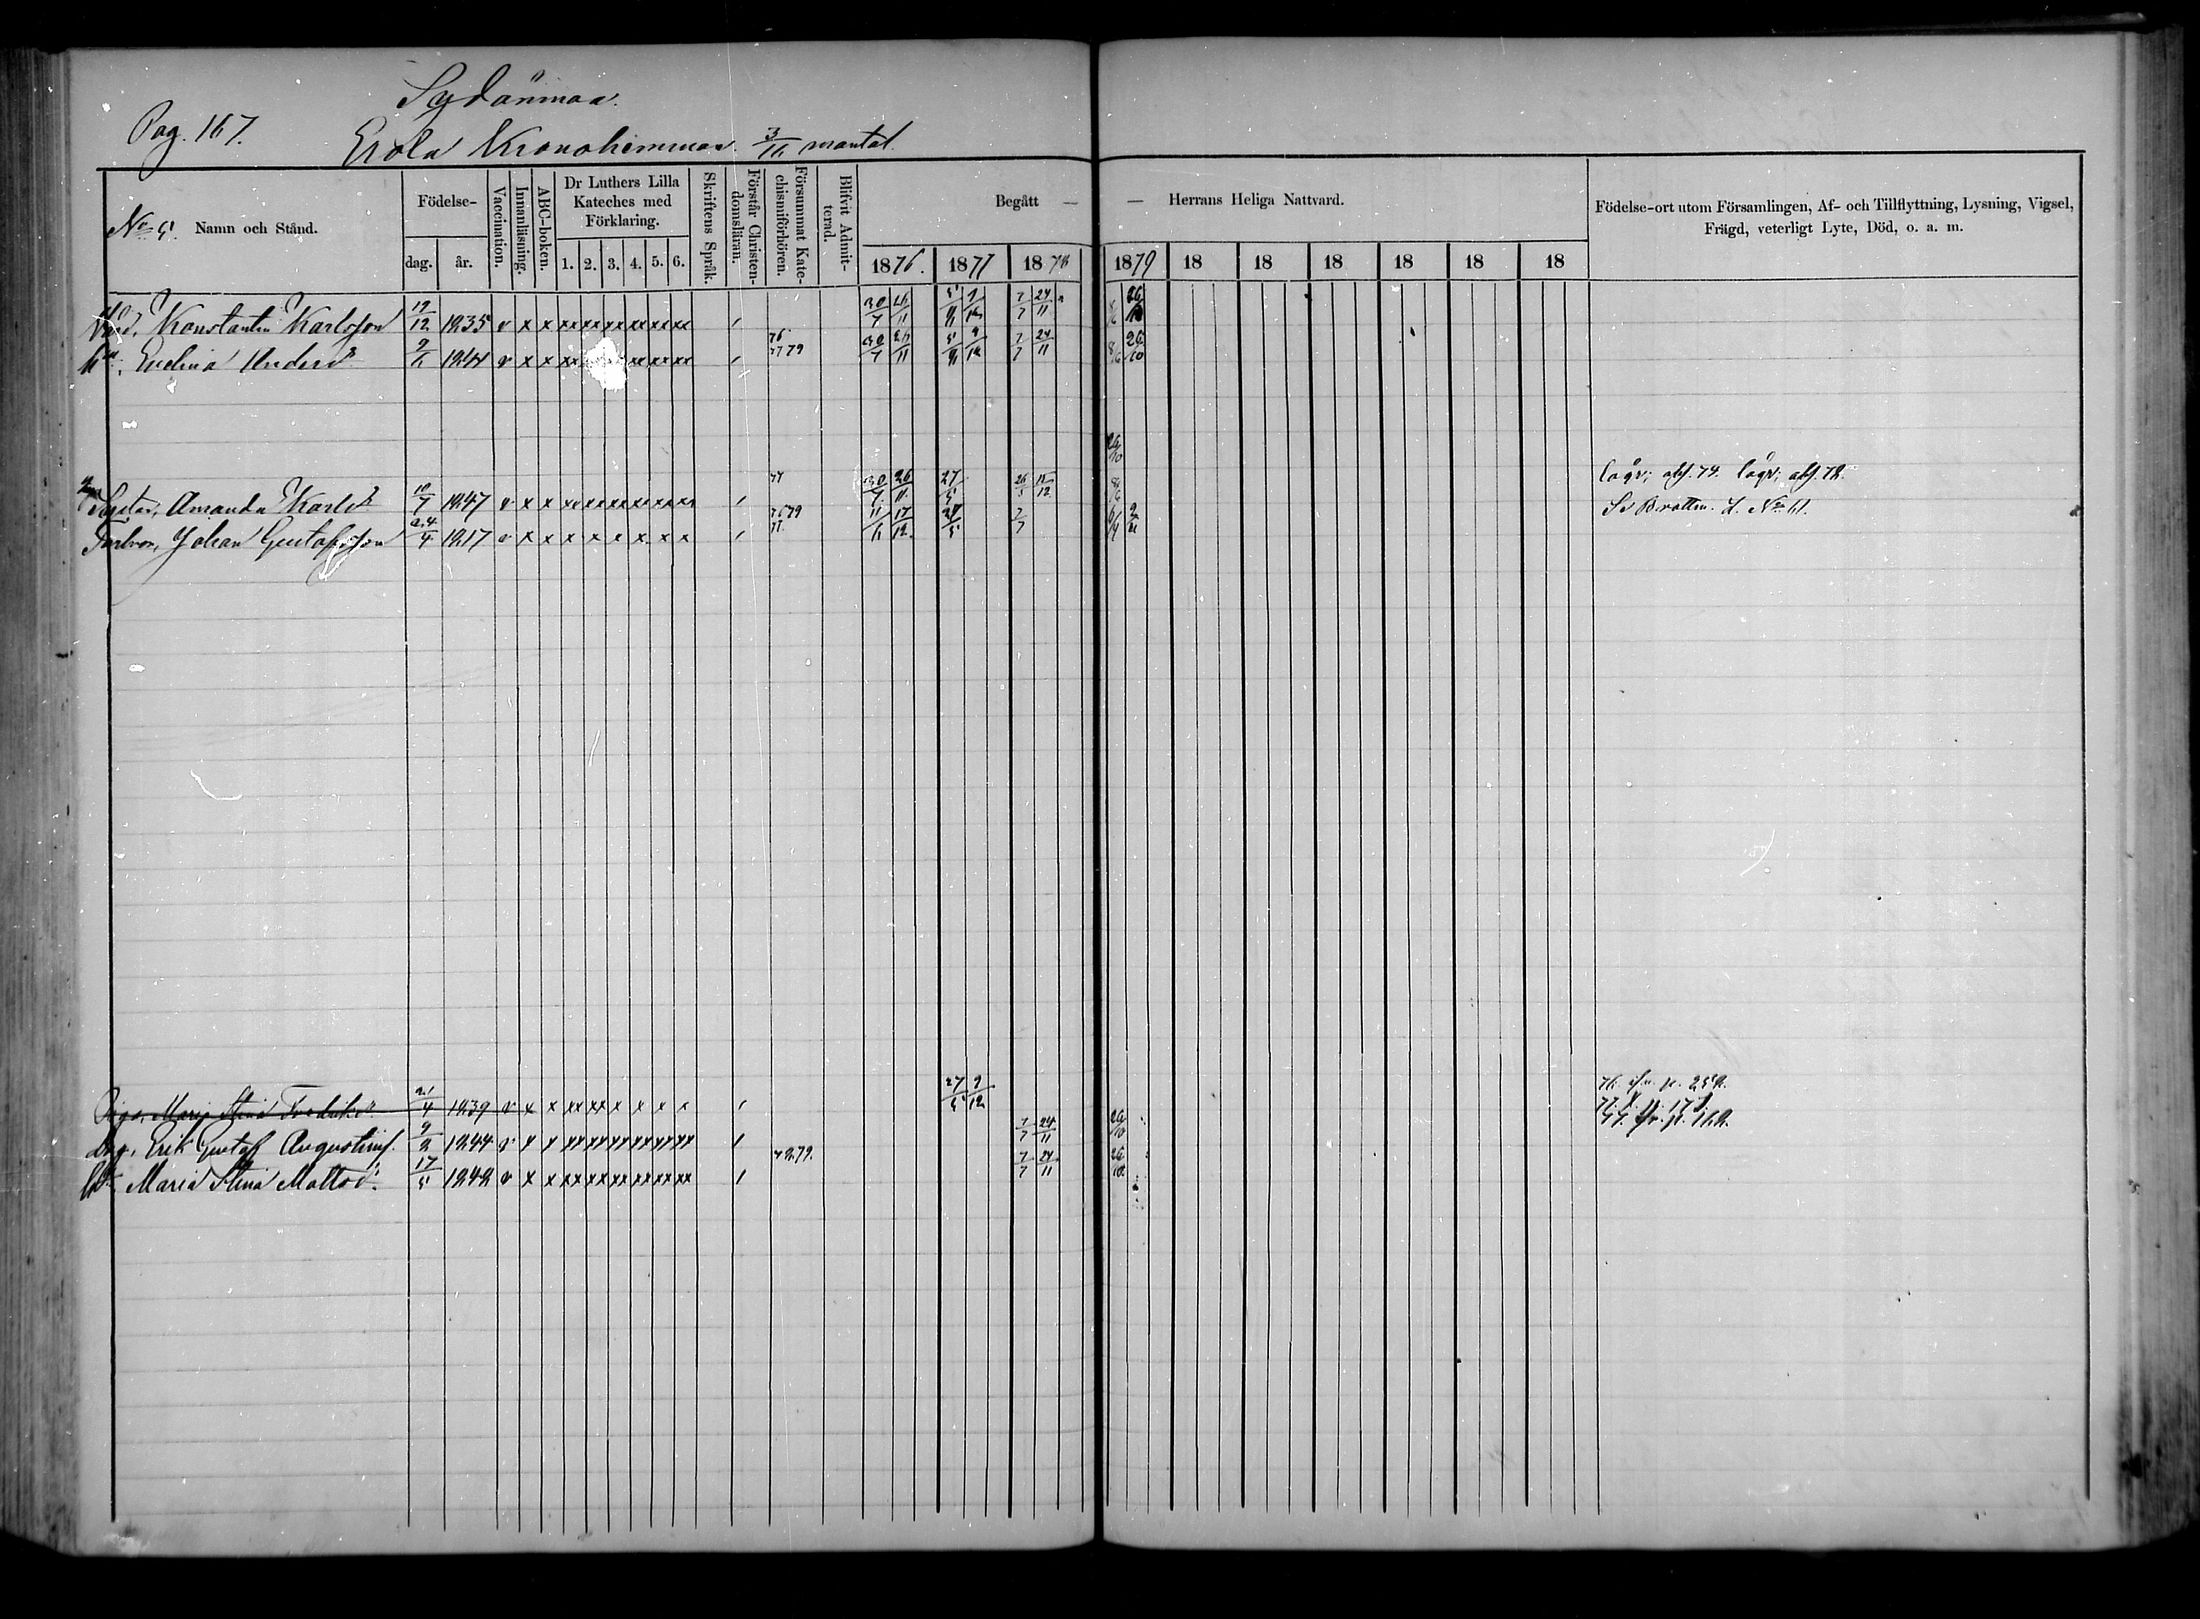 Sydänmaa.
Pag. 167.
Erola Kronohemman. 3/16 mantal.
No 5. Namn och Stånd.
Födelse-
dag. år.
Vaccination.
Innanläsning.
ABC-boken.
Dr Luthers Lilla Kateches med Förklaring.
1. 2. 3. 4. 5. 6.
Skriftens Språk.
Förstår Christendomsläran.
Försummat Katechismiförhören.
Blifvit Admitterad.
Begått — — Herrans Heliga Nattvard.
1876. 1877 1878 1879 18 18 18 18 18 18
Födelse-ort utom Församlingen, Af- och Tillflyttning, Lysning, Vigsel,
Frägd, veterligt Lyte, Död, o. a. m.
Konstantin Karlsson 19/12 1835 v x x xx xx xx xx xx xx / 30/7 26/11 5/8 9/12 7/7 24/11 8/6 26/10
h:u, Evelina Andersd:r 9/6 1841 v x x xx xx xx xx / 76 77 79 30/7 26/11 9/12 7/7 24/11 8/6 26/10
26/10
Syster, Amanda Karlsd:r 10/7 1847 v x x xx xx xx xx xx xx / 77 30/7 26/11 27/5 26/5 15/12 8/6
Farbror, Johan Gustafsson 24/4 1817 v x x x x x x x x / 76 79 77 11/6 17/12 27/5 7/7 6/4
Piga, Maria Stina Fredriksd:r 21/4 1839 v x x xx xx x x x x / 27/5 9/12 76 ifr. p. 252.
Drg, Erik Gustaf Augustinss. 9/2 1844 v x x xx xx xx xx xx xx / 7/7 24/11 26/10
h:u, Maria Stina Mattsd:r 17/5 1842 v x x xx xx xx xx xx xx / 78 79. 7/7 24/11 26/10